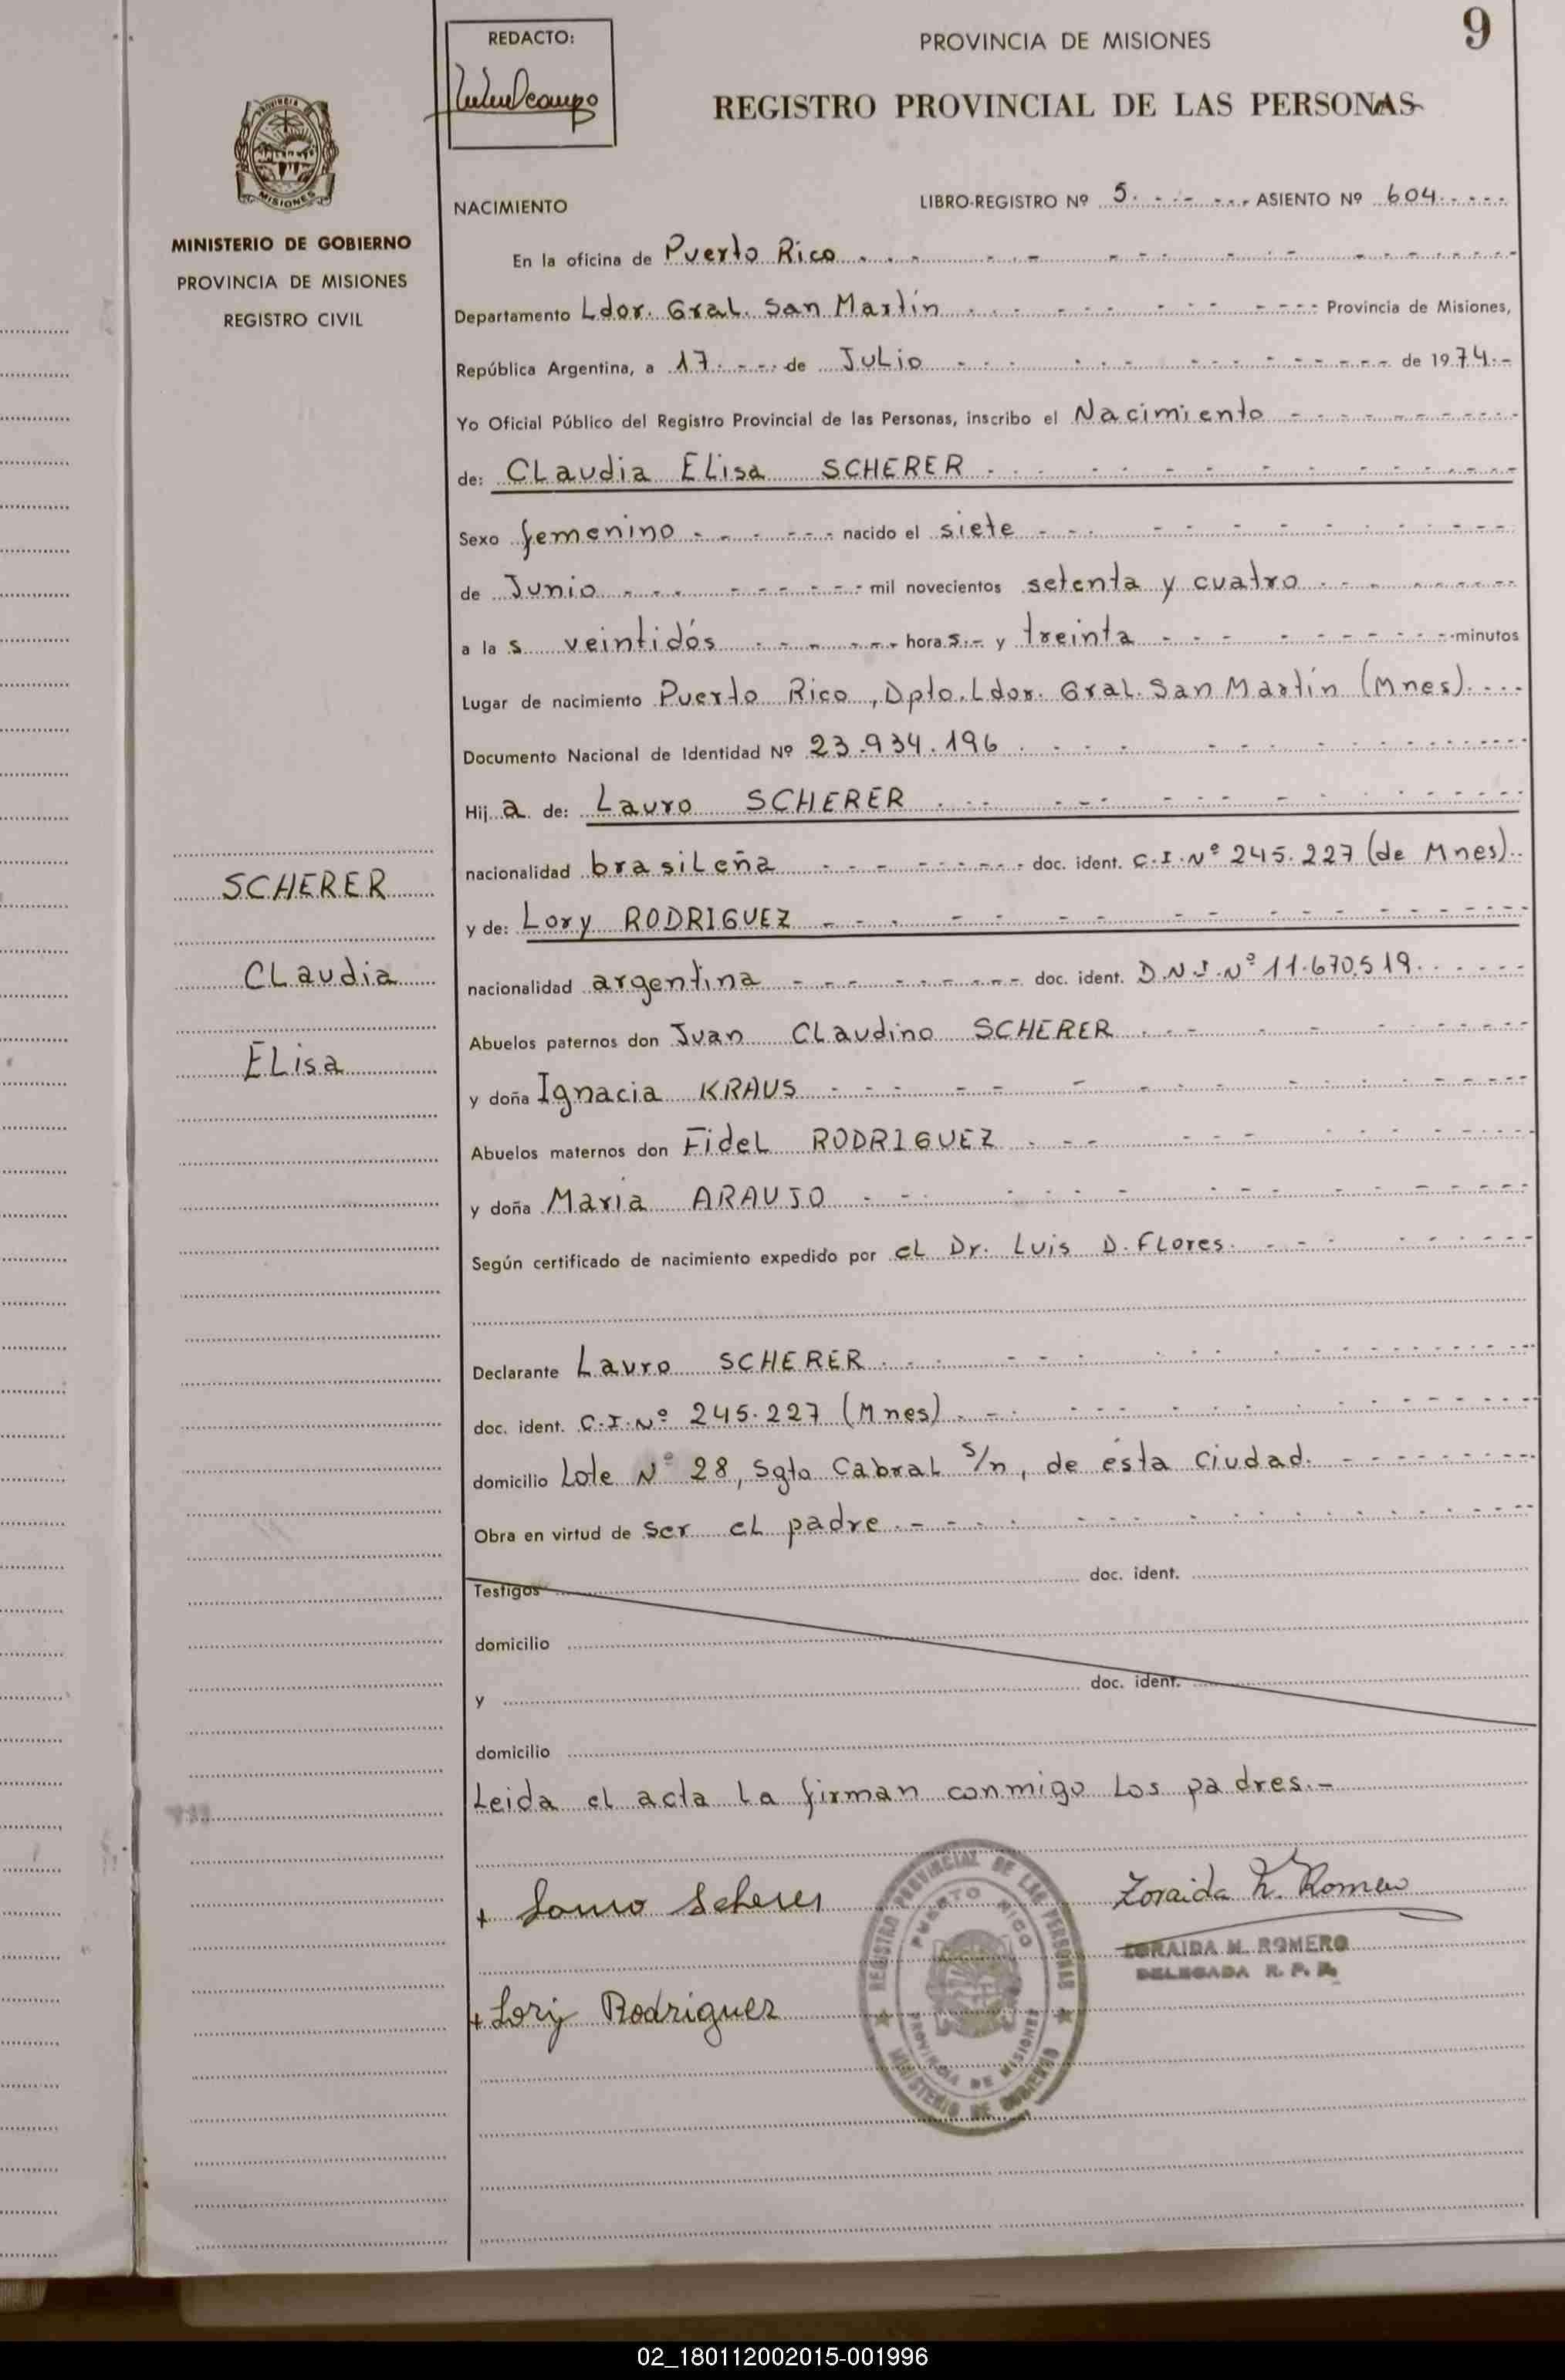 REDACTO:
PROVINCIA DE MISIONES
9
REGISTRO PROVINCIAL DE LAS PERSONAS
MISIONES
MINISTERIO DE GOBIERNO
PROVINCIA DE MISIONES
REGISTRO CIVIL
NACIMIENTO LIBRO-REGISTRO Nº 5. ASIENTO Nº 604
En la oficina de Puerto Rico
Departamento Ldor. Gral. San Martín Provincia de Misiones,
República Argentina, a 17 de Julio de 1974.-
Yo Oficial Público del Registro Provincial de las Personas, inscribo el Nacimiento
de: Claudia Elisa SCHERER
Sexo femenino nacido el siete
de Junio mil novecientos setenta y cuatro
a la s veintidós hora s.- y treinta minutos
Lugar de nacimiento Puerto Rico, Dpto. Ldor. Gral. San Martín (Mnes)
Documento Nacional de Identidad Nº 23.934.196
Hij a de: Lauro SCHERER
nacionalidad brasileña doc. ident. C.I.Nº 245.227 (de Mnes)
y de: Lory RODRIGUEZ
nacionalidad argentina doc. ident. D.N.I.Nº 11.670.519
Abuelos paternos don Juan Claudino SCHERER
y doña Ignacia KRAUS
Abuelos maternos don Fidel RODRIGUEZ
y doña Maria ARAUJO
Según certificado de nacimiento expedido por el Dr. Luis D. Flores
Declarante Lauro SCHERER
doc. ident. C.I.Nº 245.227 (Mnes)
domicilio Lote Nº 28, Sgto Cabral s/n, de ésta Ciudad.
Obra en virtud de ser el padre.
Testigos doc. ident.
domicilio
y doc. ident.
domicilio
Leida el acta la firman conmigo los padres.-
SCHERER
Claudia
Elisa
+ Lauro Scherer
Zoraida M. Romero
ZORAIDA M. ROMERO
DELEGADA R. P. P.
+ Lory Rodriguez
REGISTRO PROVINCIAL DE LAS PERSONAS
PUERTO RICO
PROVINCIA DE MISIONES
MINISTERIO DE GOBIERNO
02_180112002015-001996